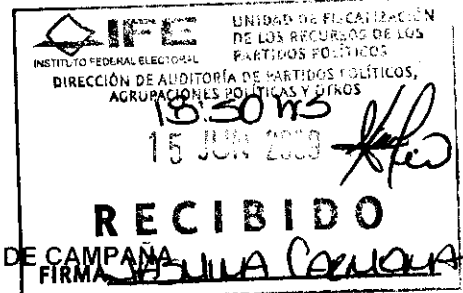 IFE
INSTITUTO FEDERAL ELECTORAL
UNIDAD DE FISCALIZACIÓN
DE LOS RECURSOS DE LOS
PARTIDOS POLÍTICOS
DIRECCIÓN DE AUDITORÍA DE PARTIDOS POLÍTICOS,
AGRUPACIONES POLÍTICAS Y OTROS
18:50 HS
15 JUN 2009
RECIBIDO
DE CAMPAÑA
FIRMA